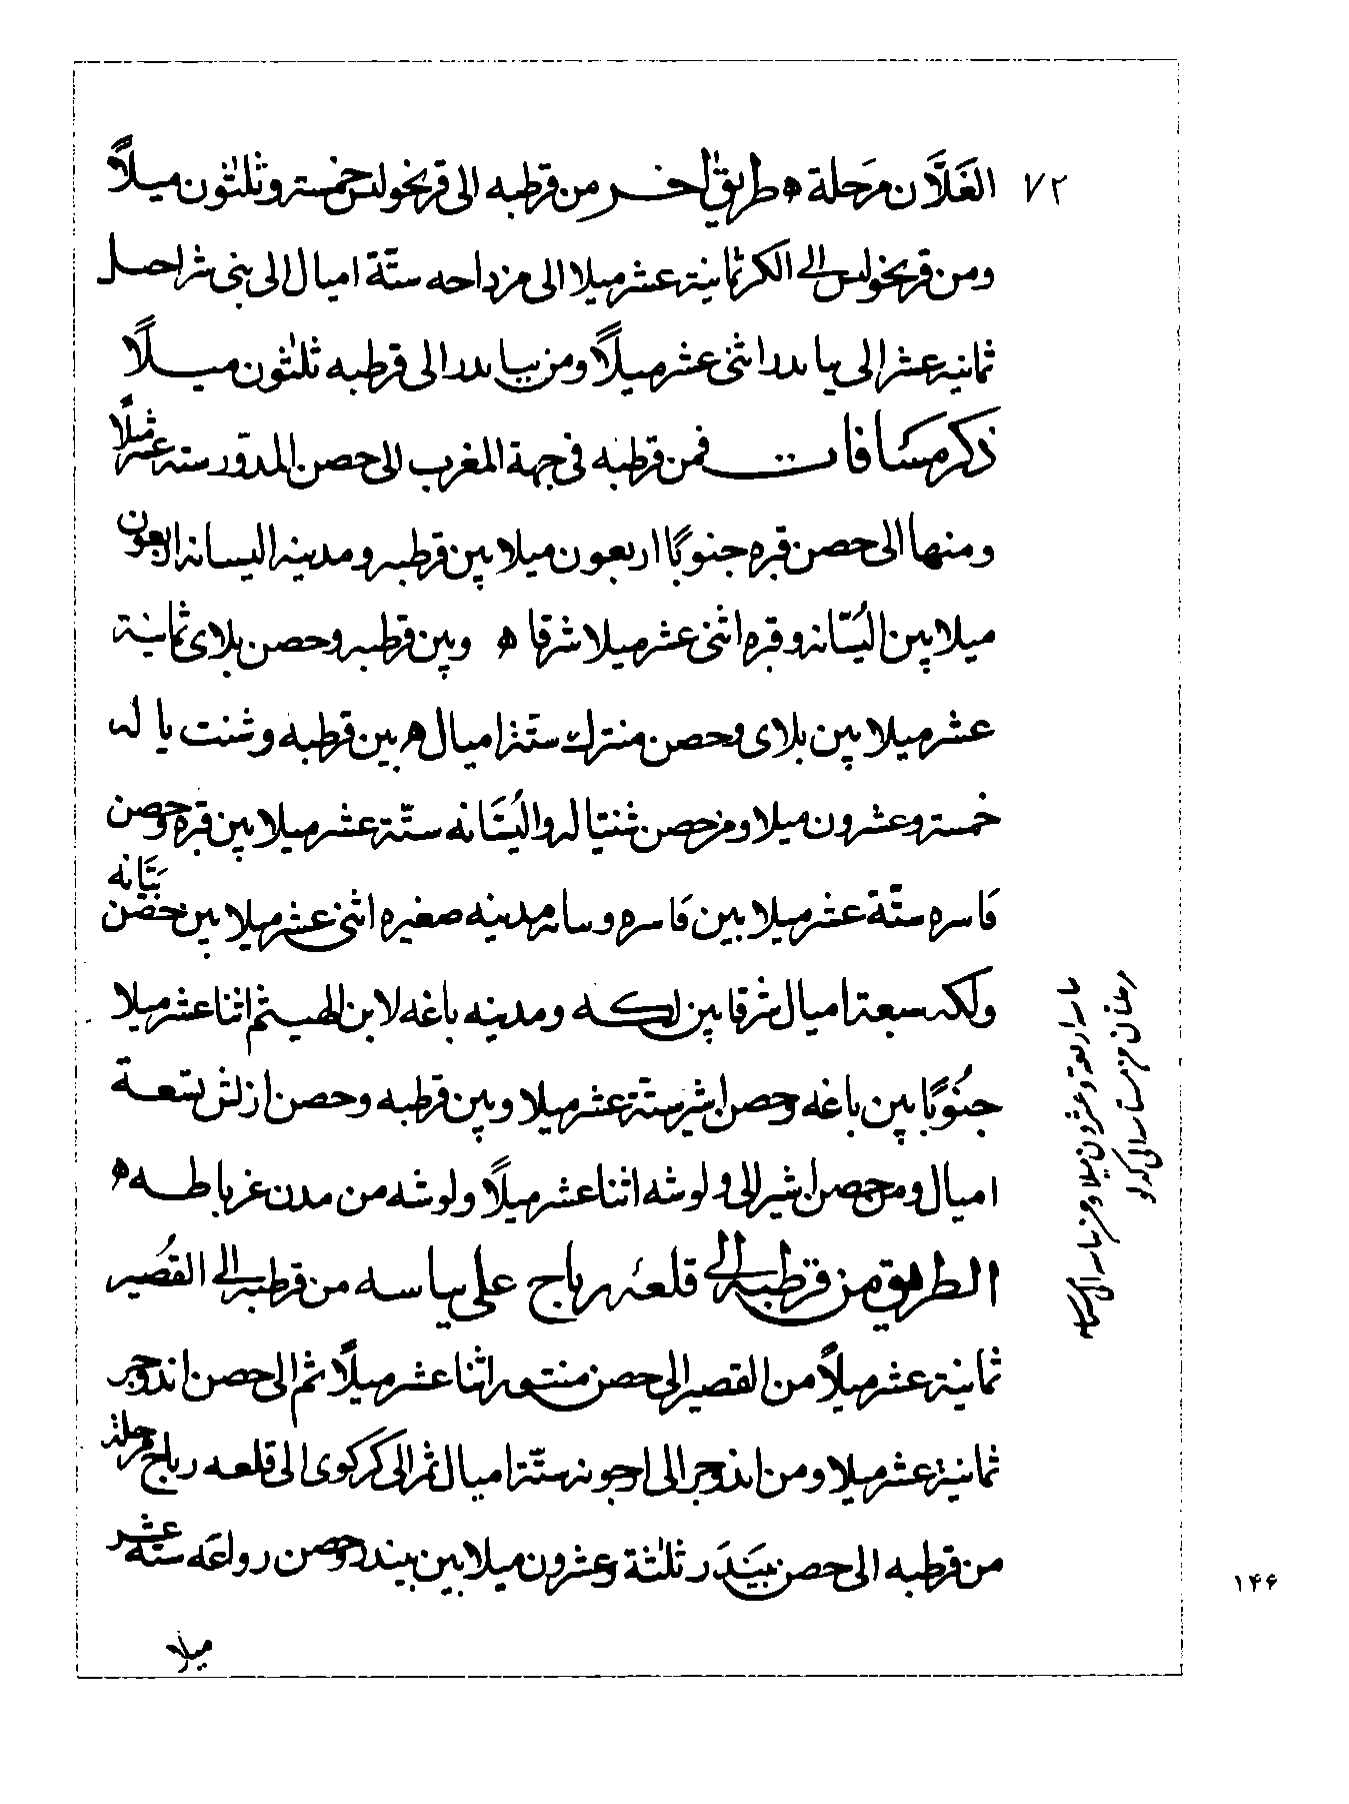 ٧٢
الغَلَّان مَرحلة ه طريق اخر من قرطبه الى قربخولس خمسة وثلثون ميلاً
ومن قربخولس الى الكر ثمانية عشر ميلا الى مزداحه ستّة اميال الى بنى شراحل
ثمانية عشر الى اثنى عشر ميلًا ومن الى قرطبه ثلثون ميلًا
ذكر مسَافات فمن قرطبه فى جهة المغرب الى حصن المدوّر ستة عشر ميلًا
ومنها الى حصن قبره جنوبًا اربعون ميلا بين قرطبه ومدينه اليسانه اربعون
ميلا بين اليُسّانه وقبره اثنى عشر ميلا شرقا ه وبين قرطبه وحصن بلاى ثمانية
عشر ميلا بين بلاى وحصن منترك ستّة اميال ه بين قرطبه وشنت ياله
خمسة وعشرون ميلا ومن حصن شنتياله واليُسَّانه ستّة عشر ميلا بين قبره وحصن
قاسره ستّة عشر ميلا بين قاسره وبيانه مدينه صغيره اثنى عشر ميلا بين حصن
بيَّانه
ولكه سبعة اميال شرقا بين لكه ومدينه باغه لابن الهيثم اثنا عشر ميلا
جنُوبًا بين باغه وحصن اشر ستّة عشر ميلا وبين قرطبه وحصن ازلش تسعة
اميال ومن حصن اشير الى ولوشه اثنا عشر ميلًا ولوشه من مدن غرباطه ه
الطريق من قرطبه الى قلعه رباح على بياسه من قرطبه الى القصُير
ثمانية عشر ميلاً من القصير الى حصن اثنا عشر ميلًا ثم الى حصن اندوجر
ثمانية عشر ميلا ومن اندوجر الى اوجونه ستّة اميال ثم الى كركوى الى قلعه رباح مرحلة
من قرطبه الى حصن بيَندَر ثلثة وعشرون ميلا بين بيندر وحصن رواعَه ستّه عشر
ميلا
اربعة وعشرون ميلا ومن الى
مرحلتان من الى
١٤۶